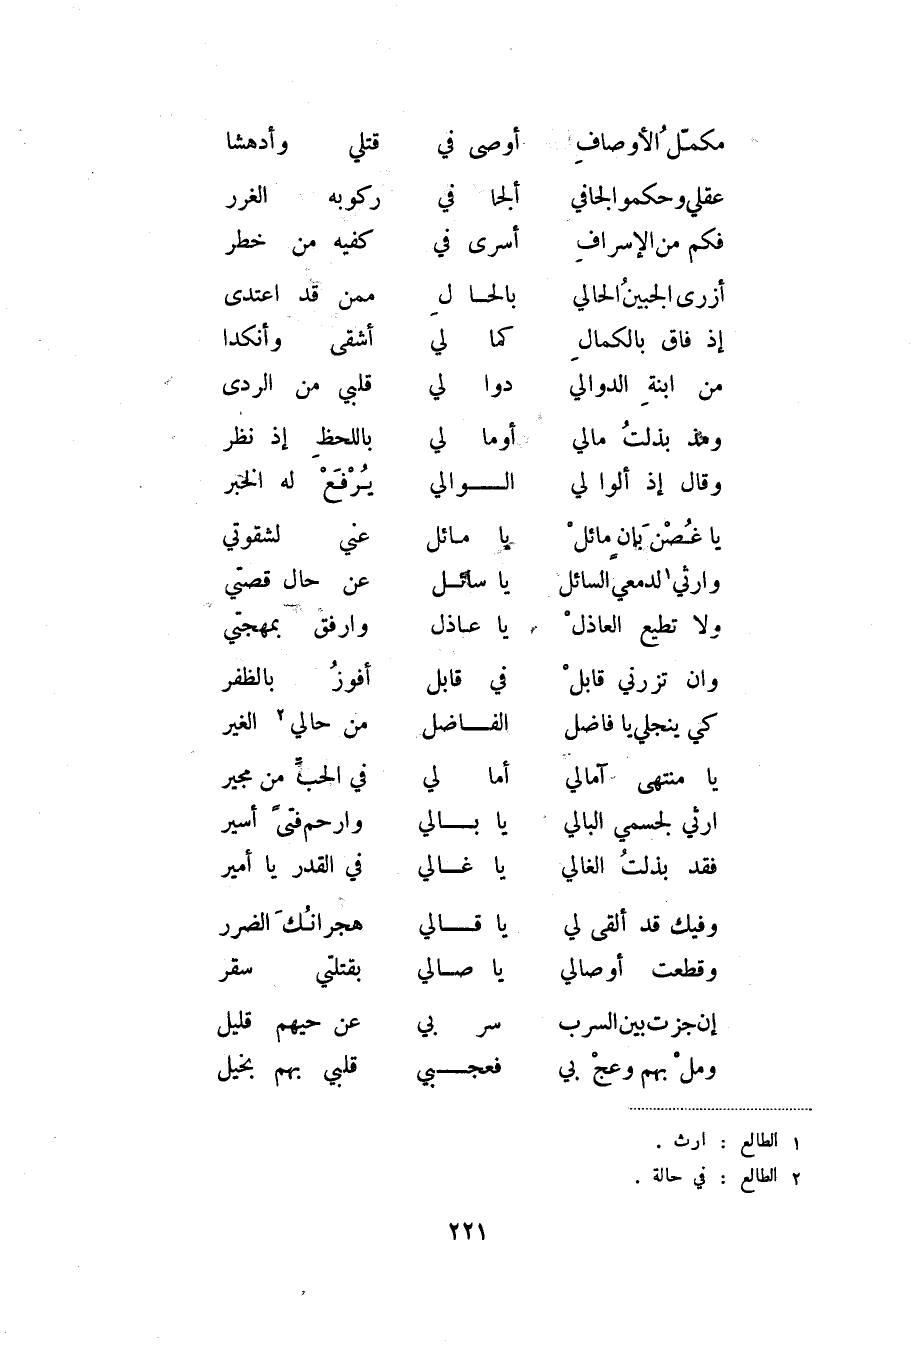 مكمّلُ الأوصافِ أوصى في قتلي وأدهشا
عقلي وحكمو الجافي ألجا في ركوبه الغرر
فكم من الإسرافِ أسرى في كفيه من خطر
أزرى الجبينُ الحالي بالحالِ ممن قد اعتدى
إذ فاق بالكمالِ كما لي أشقى وأنكدا
من ابنةِ الدوالي دوا لي قلبي من الردى
ومذ بذلتُ مالي أوما لي باللحظِ إذ نظر
وقال إذ ألوا لي الوالي يُرْفَعْ له الخبر
يا غُصْنَ بانٍ مائلْ يا مائل عني لشقوتي
وارثي١ لدمعي السائل يا سائل عن حال قصتي
ولا تطيع العاذلْ يا عاذل وارفق بمهجتي
وان تزرني قابلْ في قابل أفوزُ بالظفر
كي ينجلي يا فاضل الفاضل من حالي٢ الغير
يا منتهى آمالي أما لي في الحبّ من مجير
ارثي لجسمي البالي يا بالي وارحم فتىً أسير
فقد بذلتُ الغالي يا غالي في القدر يا أمير
وفيك قد ألقى لي يا قالي هجرانُكَ الضرر
وقطعت أوصالي يا صالي بقتلتي سقر
إن جزت بين السرب سر بي عن حيهم قليل
وملْ بهم وعجْ بي فعجبي قلبي بهم بخيل
١ الطالع : ارث .
٢ الطالع : في حالة .
٢٢١